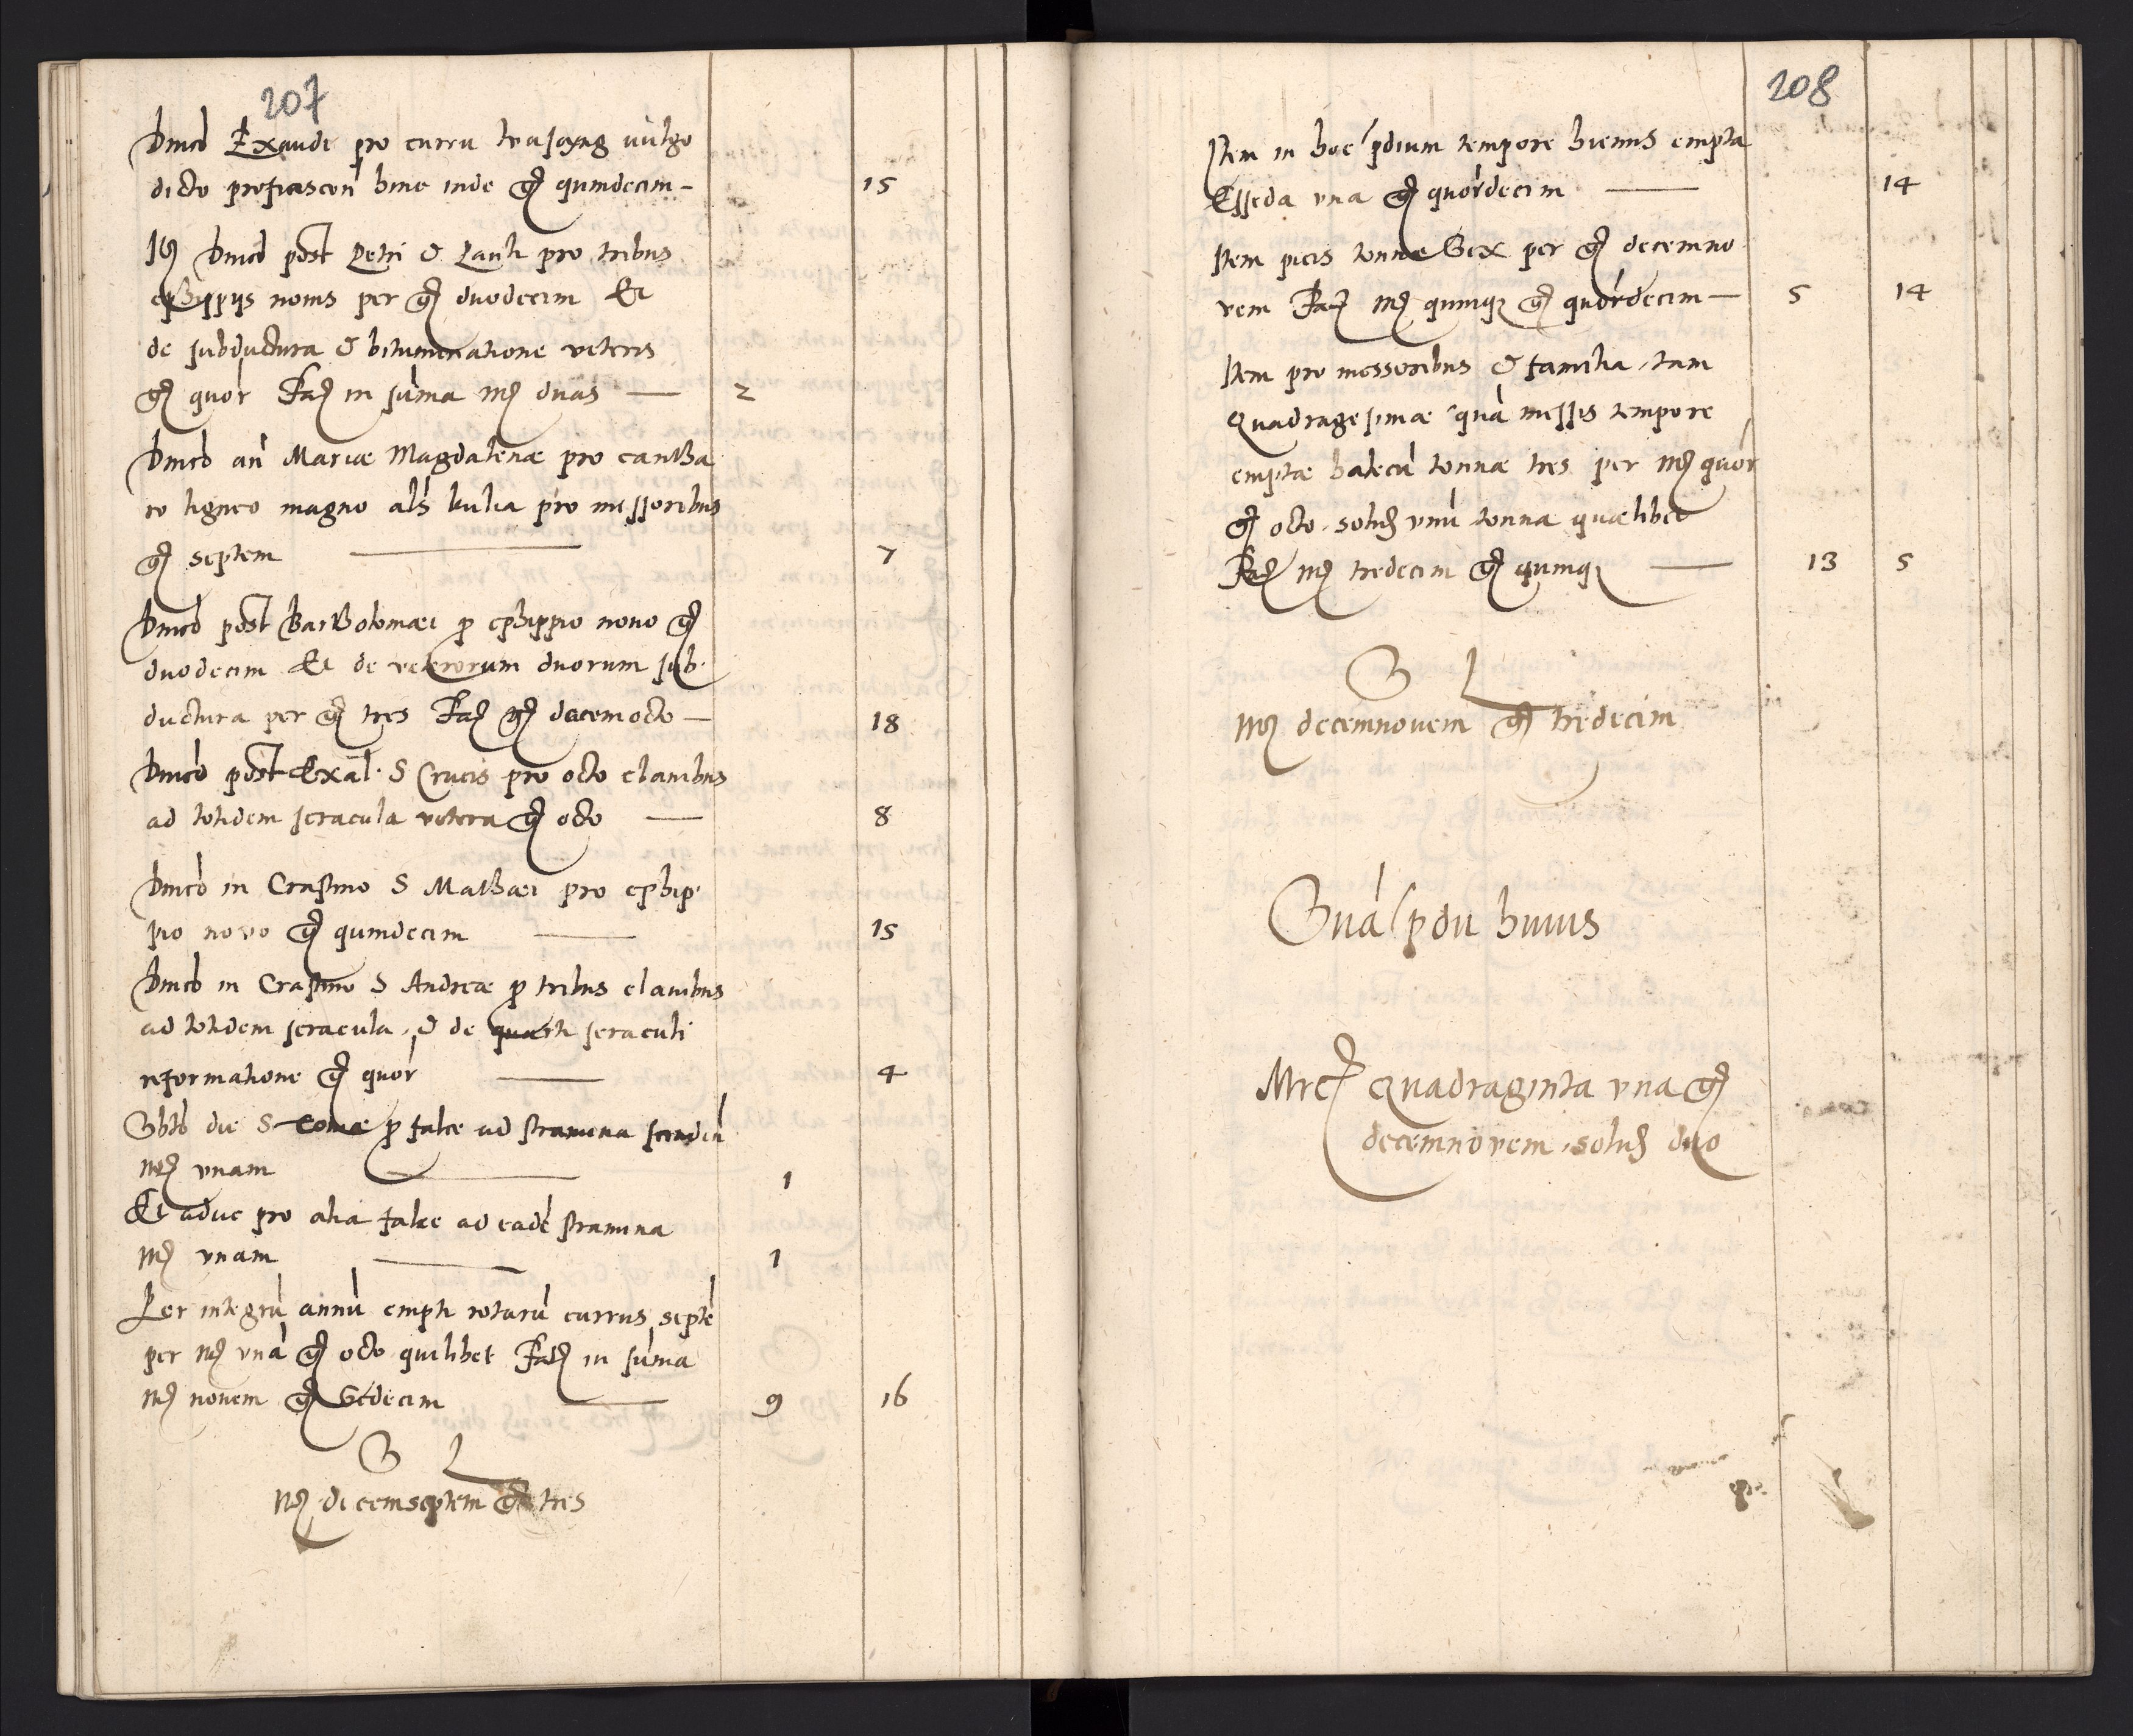 207
Dnicō Exaudi pro curru trasayng vulgo
dicto proficiscen̄ hinc inde gr quindecim – 15
It Dnicō post Petri & Pauli pro tribus
ephippijs novis per gr duodecim Et
de subductura & bituminatione veteris
gr quōr Faċ in sūma mr duas — 2
Dnicō an̄ Mariæ Magdalenæ pro cantha
ro ligneo magno al̄s kulia pro messoribus
gr septem — 7
Dnicō post Bartholomæi p ephippio novo gr
duodecim Et de veterorum duorum sub
ductura per gr tres Faċ gr decemocto — 18
Dnicō post Exal. S Crucis pro octo clavibus
ad totidem seracula vetera gr octo — 8
Dnicō in Crastino S Mathæi pro ephip
pio novo gr quindecim — 15
Dnicō in Crastino S Andreæ p tribus clavibus
ad totidem seracula, & de quarti seraculi
reformatione gr quōr — 4
Sbtō die S Tomæ p falce ad stramina scinden̄
mr unam — 1
Et aduc pro alia falce ad eadē stramina
mr unam — 1
Per integrū annū empti rotarū currus septē
per mr unā gr octo quilibet Faċ in sūma
mr novem gr sedecim — 9 16
S L
mr decemseptem gr tres
208
Item in hoc prdium tempore hiemis empta
Esseda una gr quōrdecim — 14
Item picis tonnæ sex per gr decemno
vem Faċ mr quinq gr quōrdecim — 5 14
Item pro messoribus & familia, tam
Quadragesimæ quā messis tempore
emptæ halecū tonnæ tres per mr quōr
gr octo, solid unū tonna quælibet
Faċ mr tredecim gr quinq — 13 5
S L
mr decemnovem gr tredecim
Sūa prdii huius
Mrc Quadraginta una gr
decemnovem, solid duo